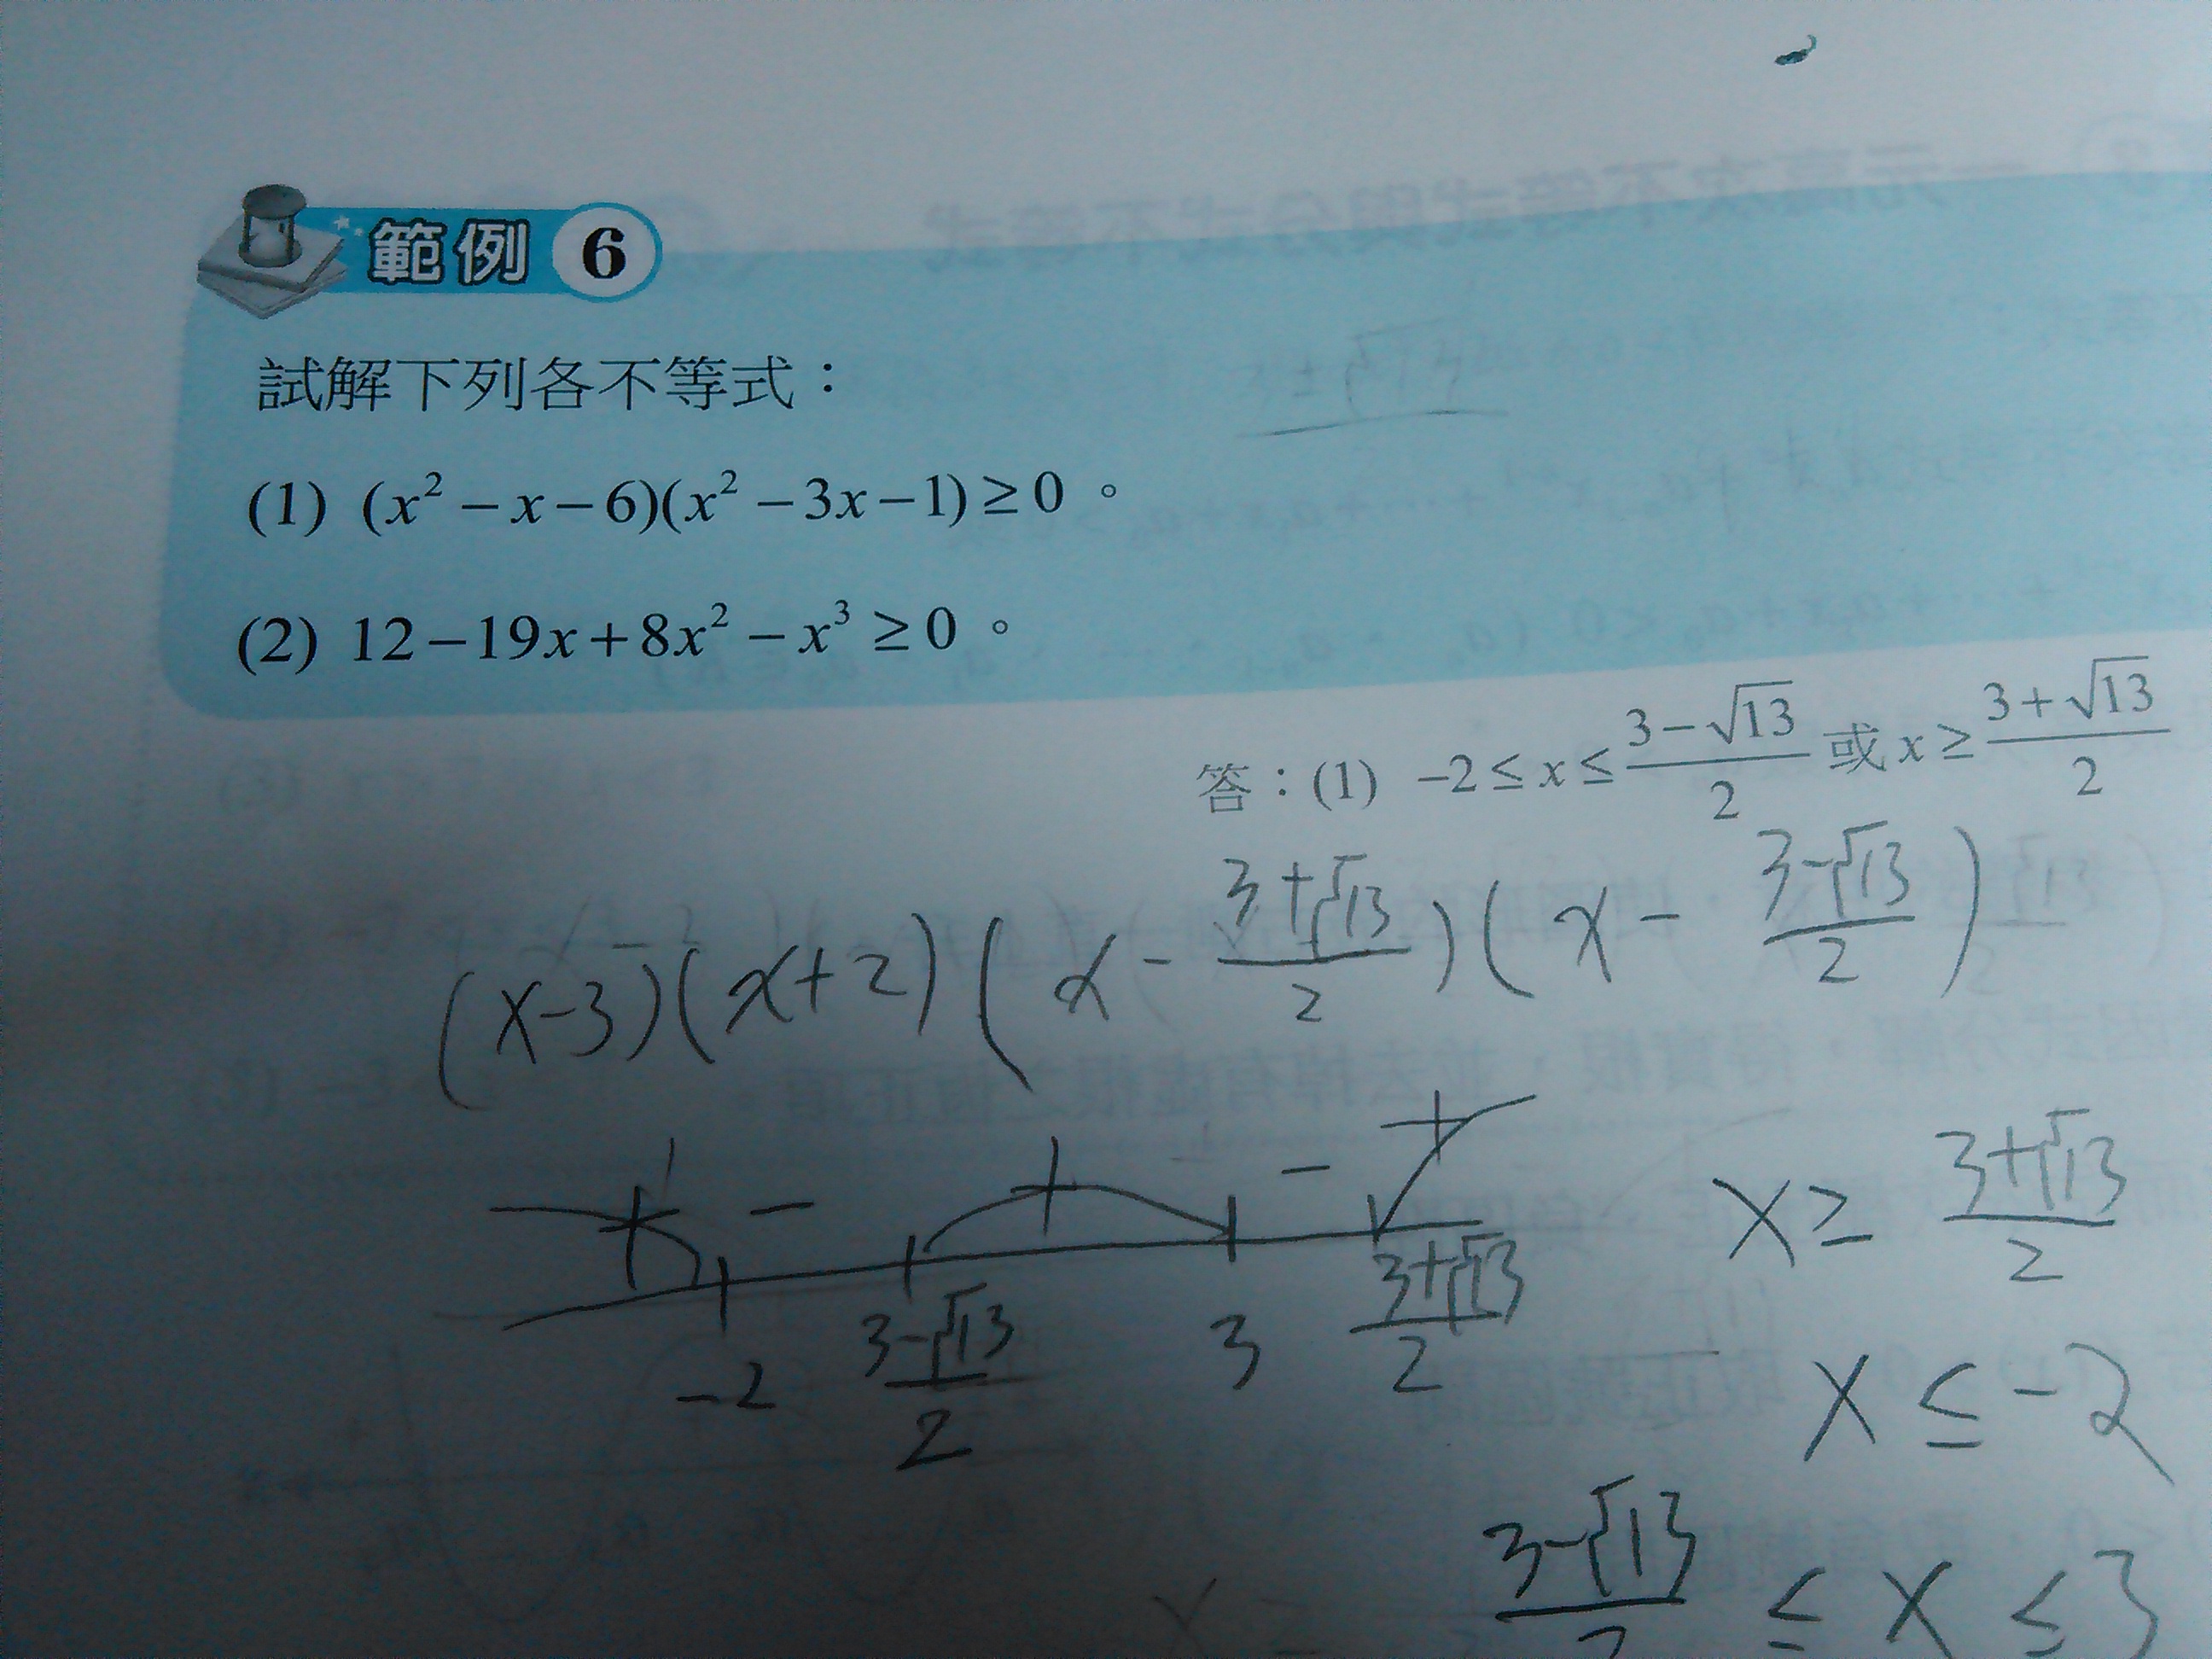 範例 6
試解下列各不等式：
(1) (x² − x − 6)(x² − 3x − 1) ≥ 0。
(2) 12 − 19x + 8x² − x³ ≥ 0。
答：(1) −2 ≤ x ≤ (3 − √13)/2 或 x ≥ (3 + √13)/2
(x−3)(x+2)(x − (3+√13)/2)(x − (3−√13)/2)
+ − + − +
−2 (3−√13)/2 3 (3+√13)/2
x ≥ (3+√13)/2
x ≤ −2
(3−√13)/2 ≤ x ≤ 3